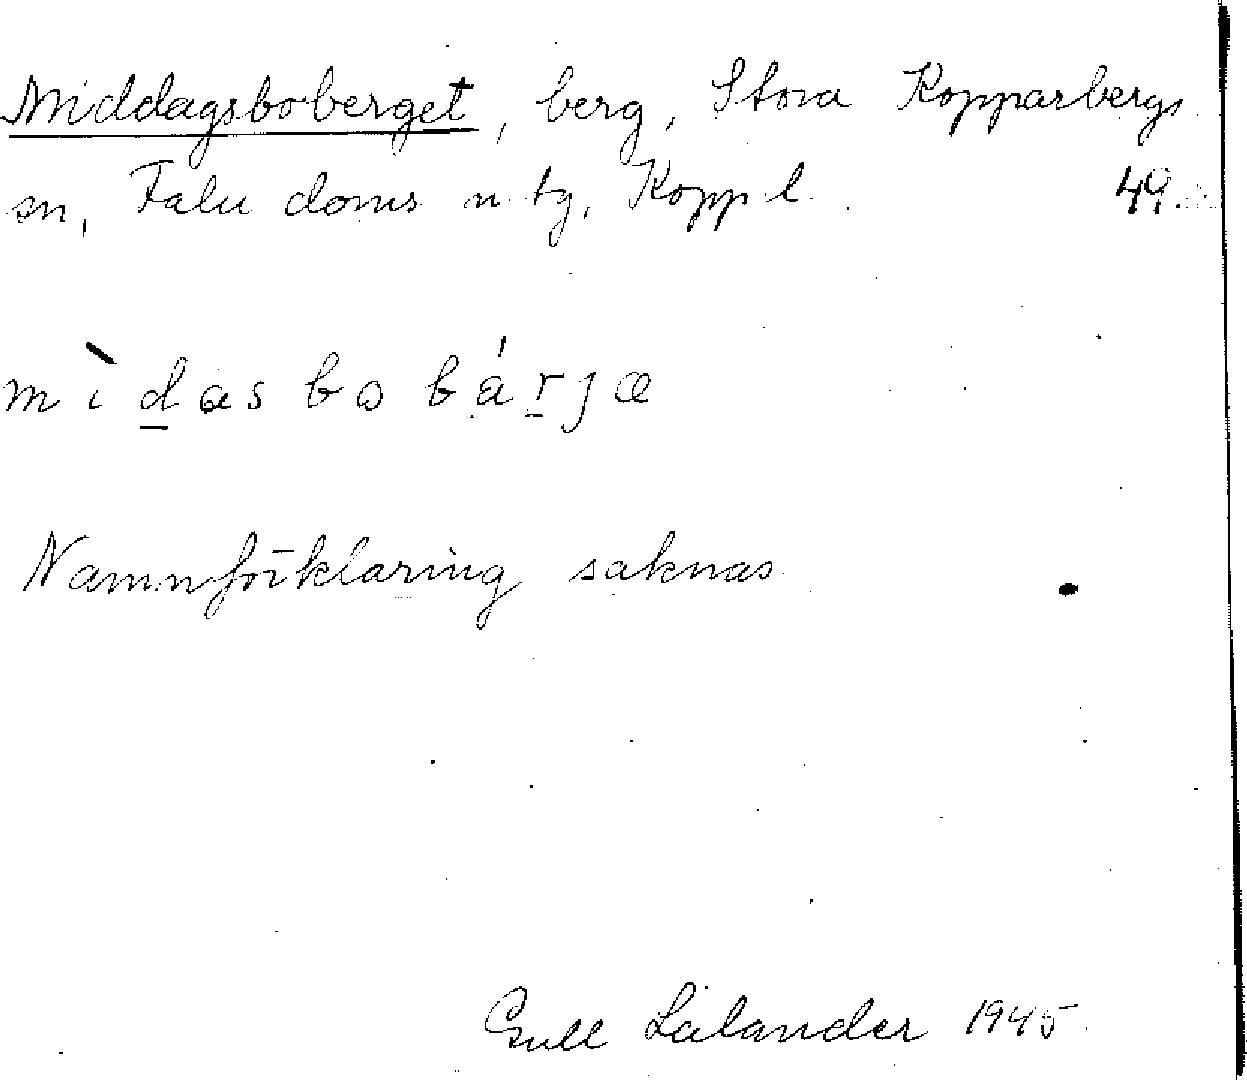 Middagsboberget, berg, Stora Kopparbergs
sn, Falu doms n. tg, Kopp l. 49.
mìdasbobárjæ
Namnförklaring saknas
Gull Lälander 1945.